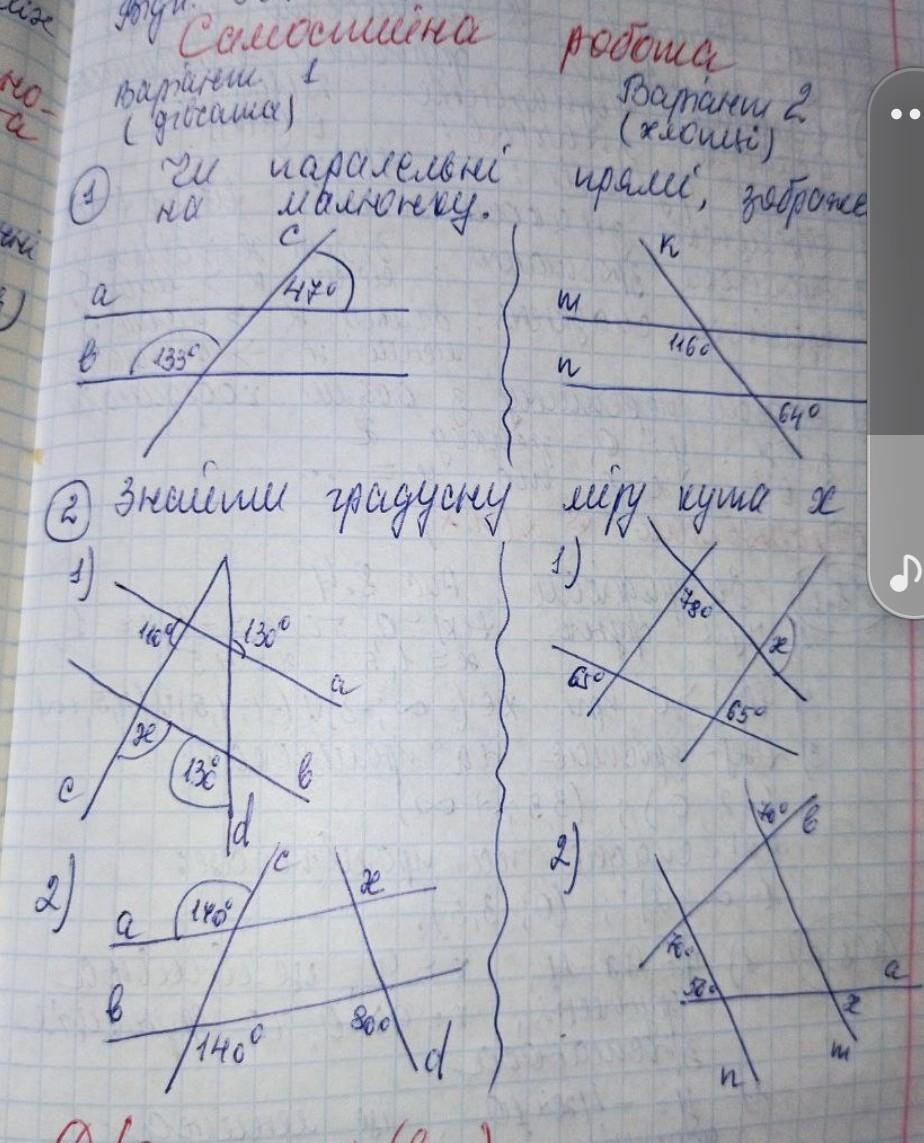 Самостійна робота
Варіант 1
(дівчата)
Варіант 2
(хлопці)
1 Чи паралельні прямі, зображе
на малюнку.
c
a
47°
в
133°
к
m
116°
n
64°
2 Знайти градусну міру кута х
1)
110°
130°
a
x
130°
в
c
d
1)
78°
65°
x
65°
2)
c
x
a
140°
в
140°
80°
d
2)
70°
в
70°
58°
a
x
m
n